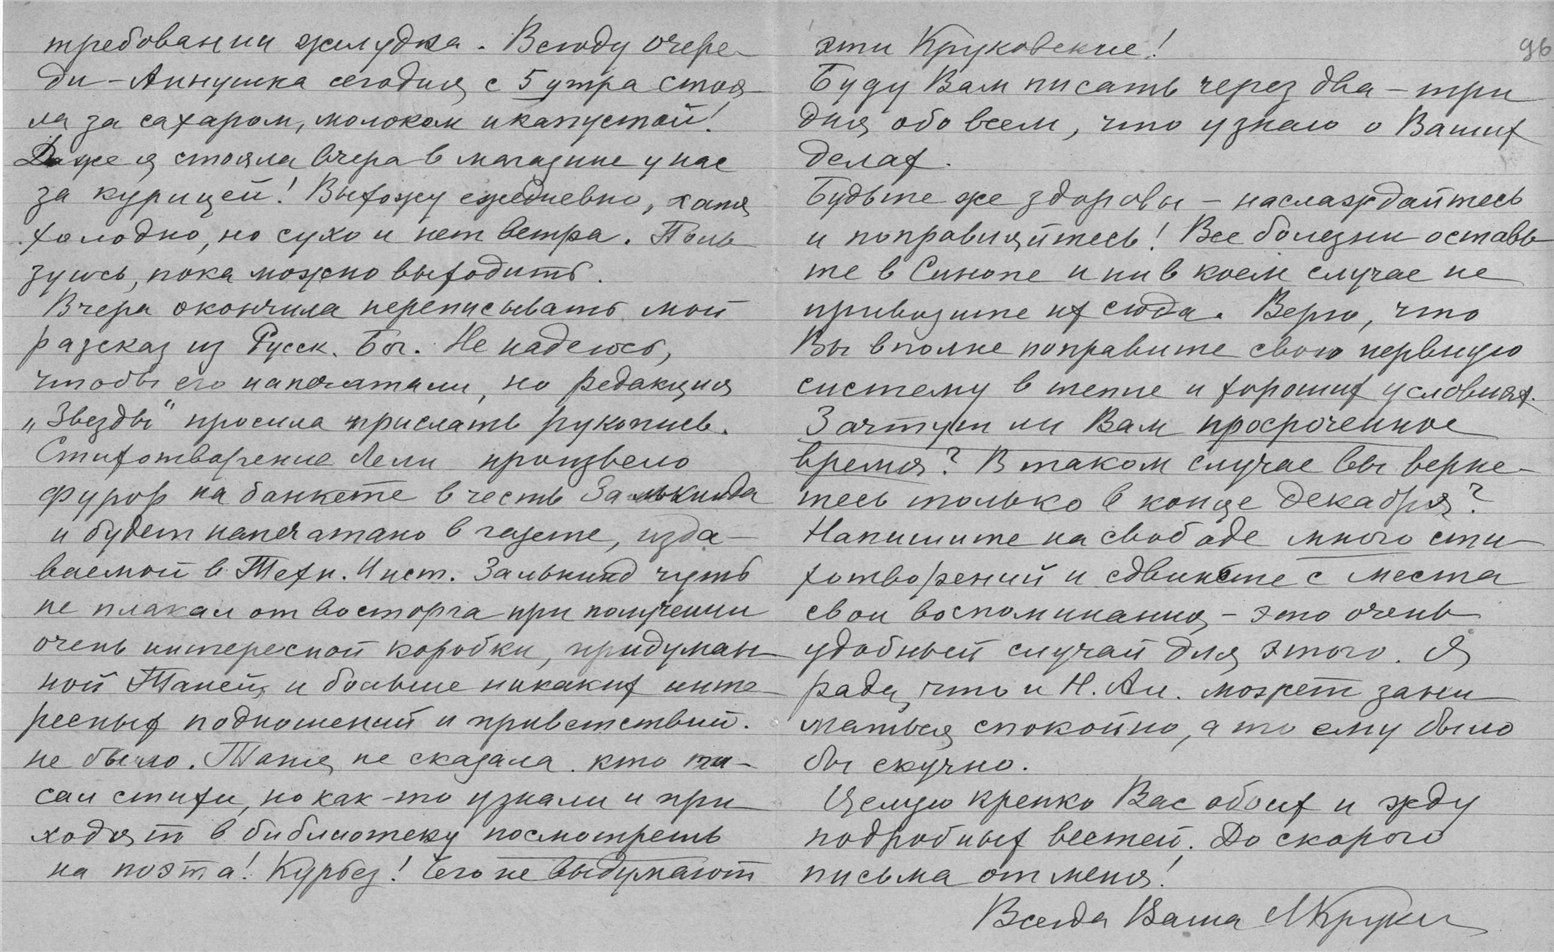 требовании желудка. Всюду очере-
ди – Аннушка сегодня с 5 утра стоя-
ла за сахаром, молоком и капустой!
Даже я стояла вчера в магазине у нас
за курицей! Выхожу ежедневно, хотя
холодно, но сухо и нет ветра. Поль-
зуюсь, пока можно выходить.
Вчера окончила переписывать мой
рассказ из Русск. Бог. Не надеюсь,
чтобы его напечатали, но редакция
„Звезды" просила прислать рукопись.
Стихотворение Лели произвело
фурор на банкете в честь Залькинда
и будет напечатано в газете, изда-
ваемой в Техн. Инст. Залькинд чуть
не плакал от восторга при получении
очень интересной коробки, придуман-
ной Таней, и больше никаких инте-
ресных подношений и приветствий
не было. Таня не сказала кто пи-
сал стихи, но как-то узнали и при-
ходят в библиотеку посмотреть
на поэта! Курьез! Чего не выдумают
эти Круковские!
96
Буду Вам писать через два – три
дня обо всем, что узнаю о Ваших
делах.
Будьте же здоровы – наслаждайтесь
и поправляйтесь! Все болезни оставь-
те в Синопе и ни в коем случае не
привозите их сюда. Верю, что
Вы вполне поправите свою нервную
систему в тепле и хороших условиях.
Зачтут ли Вам просроченное
время? В таком случае вы верне-
тесь только в конце декабря?
Напишите на свободе много сти-
хотворений и сдвиньте с места
свои воспоминания – это очень
удобный случай для этого. Я
рада, что и Н. Ал. может зани-
маться спокойно, а то ему было
бы скучно.
Целую крепко Вас обоих и жду
подробных вестей. До скорого
письма от меня!
Всегда Ваша